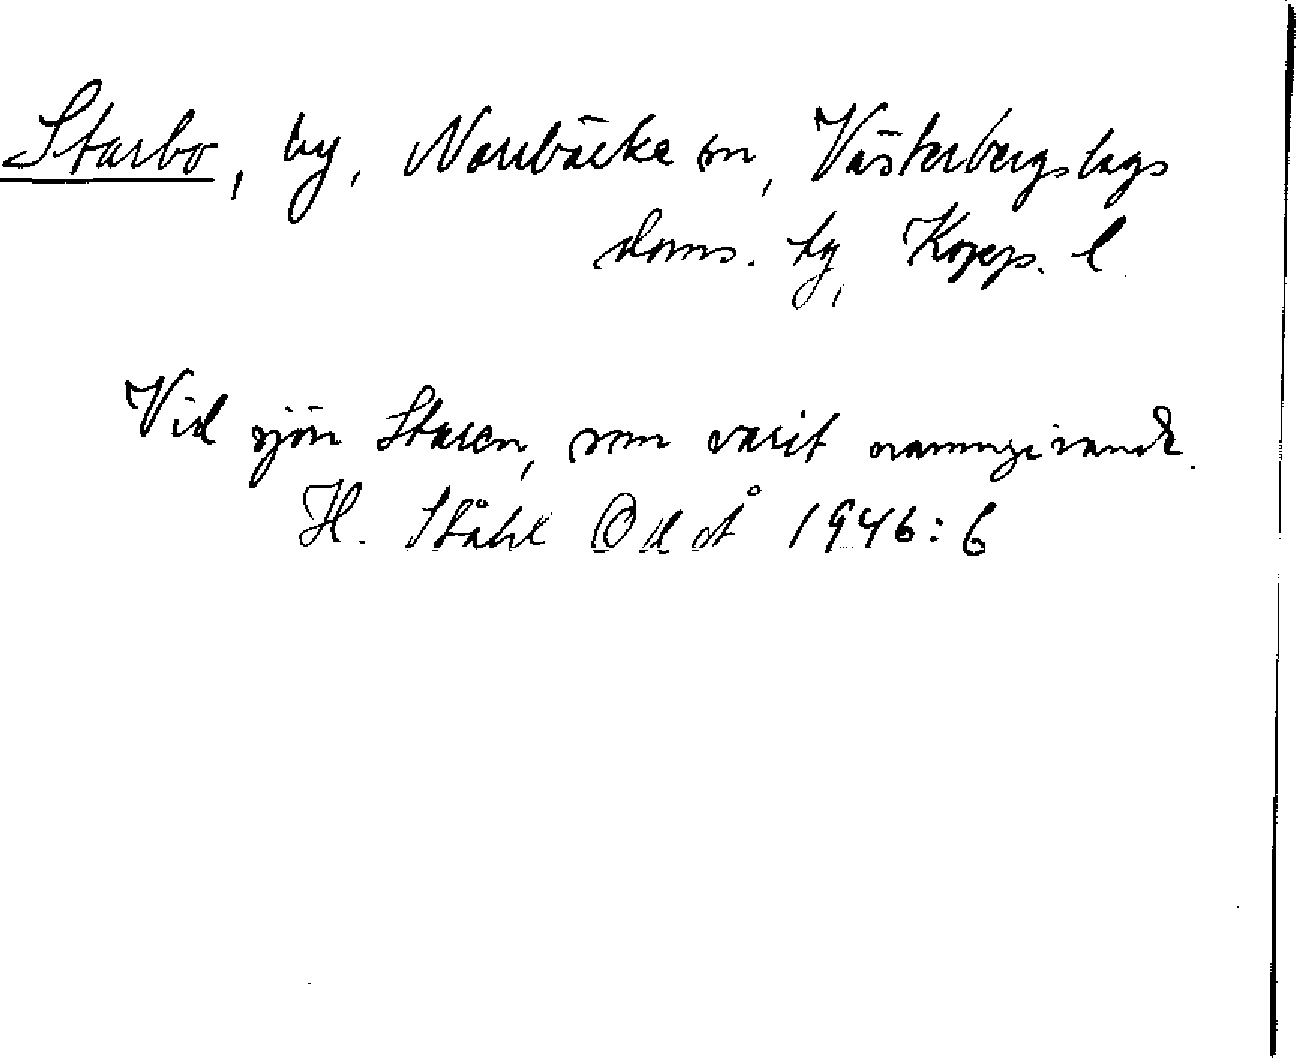 Starbo, by, Norrbärke sn, Västerbergslags
doms. by, Kopp. l.
Vid sjön Staren, som varit namngivande.
H. Ståhl 1946:6